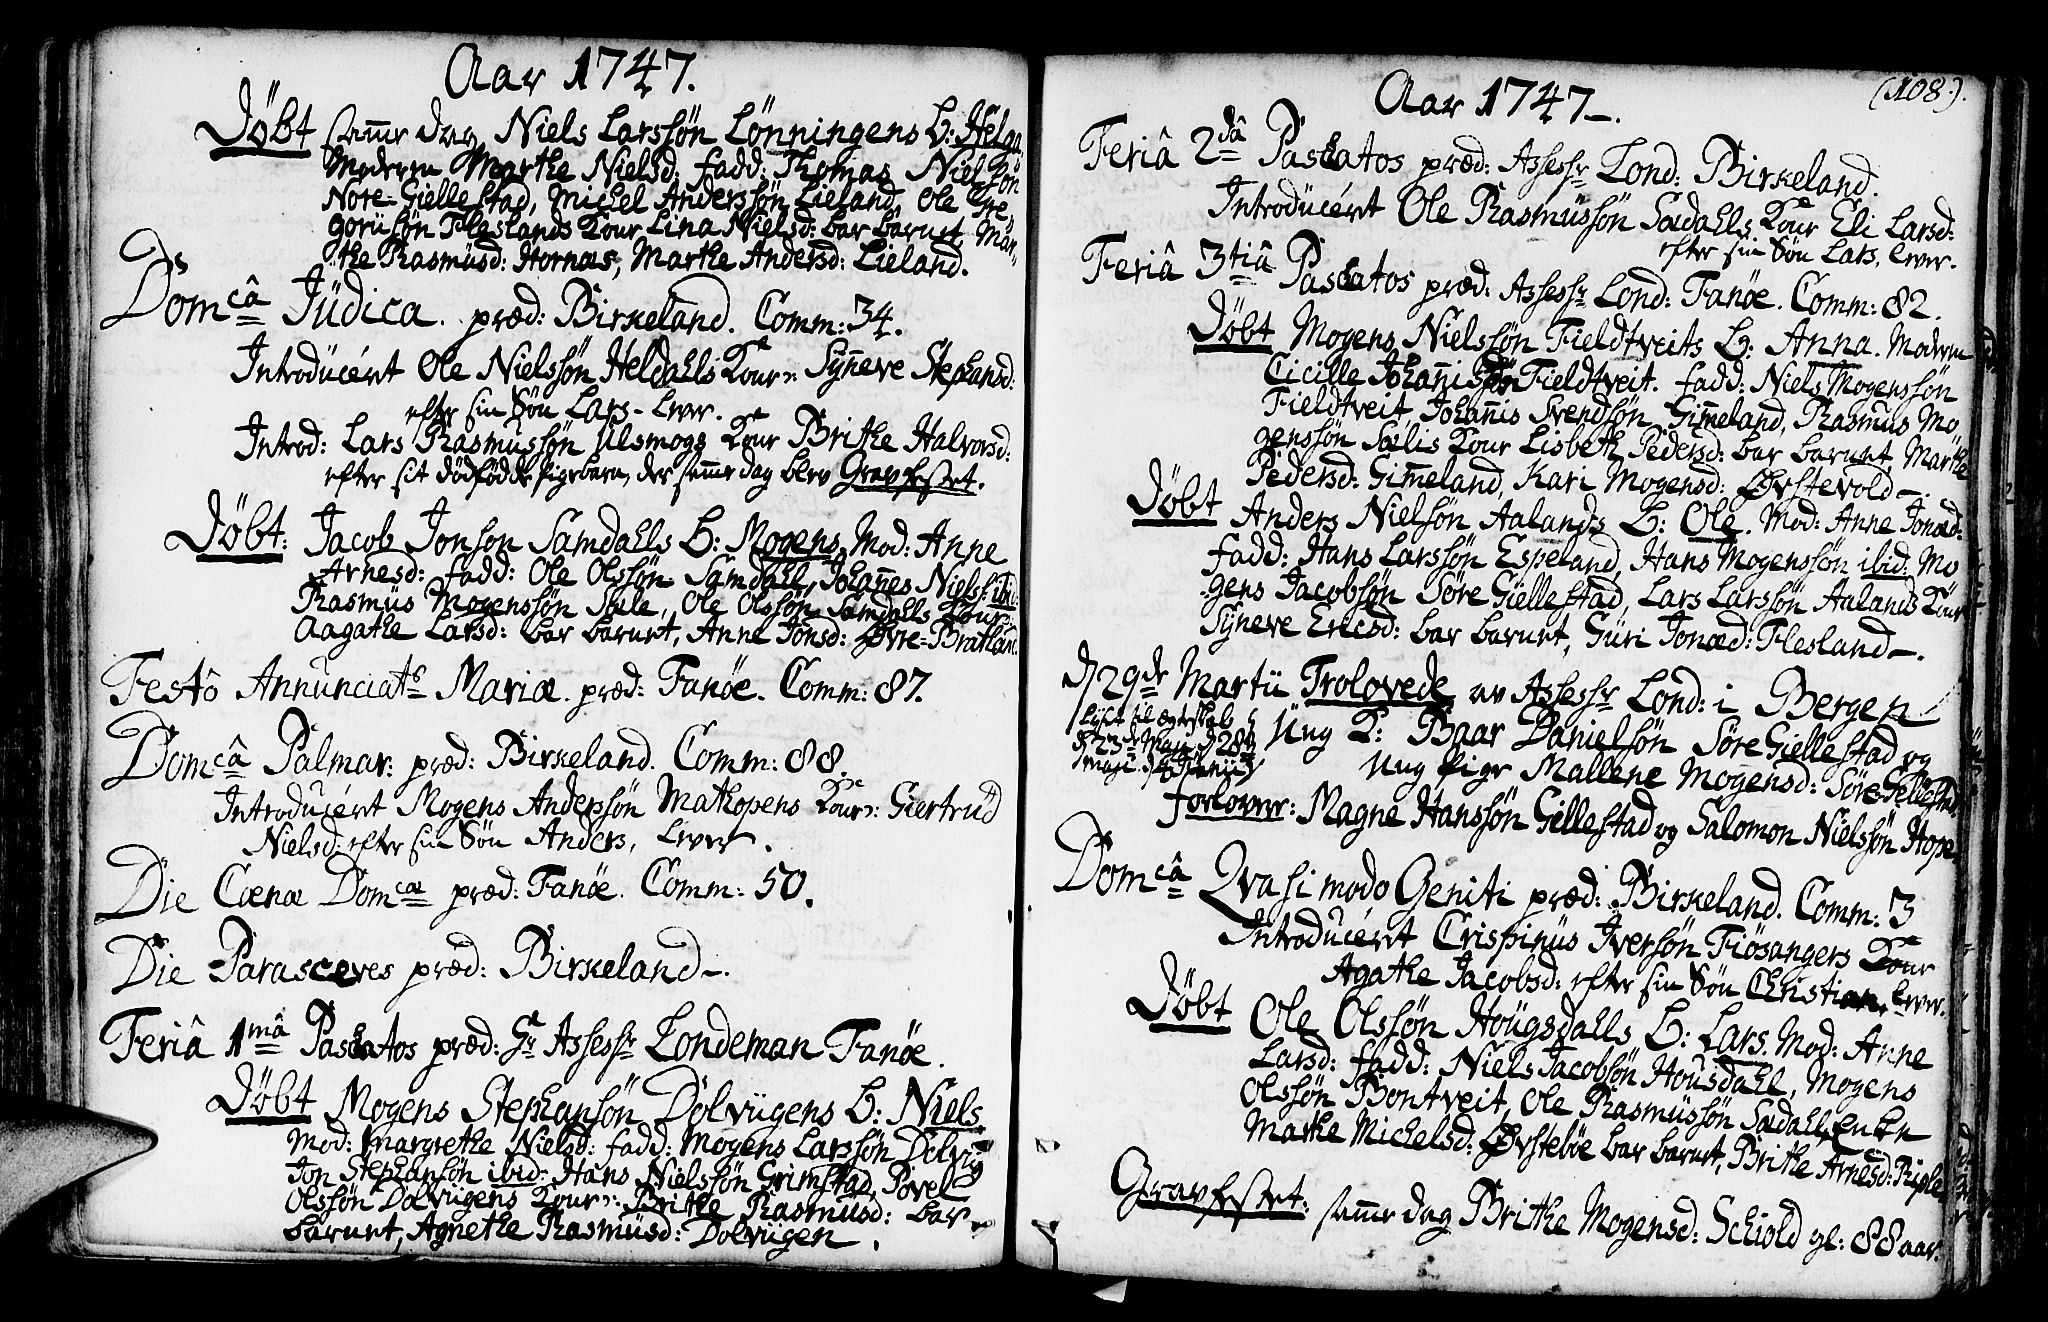 Aar 1747.
Döbt samme dag Niels Larssön Lönningens B: Helga
Moderen Marthe Nielsd: fadd: Thomas Nielssön
Nore-Giellestad, Michel Anderssön Lieland, Ole Gre,
gorüsön Fleslands Kone Lina Nielsd: bar barnet, Mar,,
the Rasmüsd: Hornæs, Marthe Andersd: Lieland.
Domcâ Jüdica. præd: Birkeland. Comm: 34.
Introdücert Ole Nielssön Heldahls Kone: Syñeve Stephansd:
efter sin Sön Lars - lever.
Introd: Lars Rasmussön Ulsmogs Kone Brithe Halvorsd:
efter sit dödfödde Pigebarn, der samme dag blev Gravfæstet.
Döbt: Jacob Jonson Samdahls B: Mogens. Mod: Anne
Arnesd: fadd: Ole Olssön Samdahl, Johañes Niels: ibid:
Rasmüs Mogenssön Sæle, Ole Olssön Samdahls Kone
Aagathe Larsd: bar barnet, Anne Jonsd: Øvre-Brathen.
Festô Annunciats Mariæ. præd: Fanöe. Comm: 87.
Domcâ Palmar: præd: Birkeland. Comm: 88.
Introducert Mogens Anderssön Mathopens Kone: Giertrud
Nielsd: efter sin Sön Anders, lever.
Die Cænæ Domcæ præd: Fanöe. Comm: 50.
Die Parasceves præd: Birkeland.
Feriâ 1mâ Paschatos præd: Hr Assessr Londeman Fanöe.
Döbt Mogens Stephansön Dolvügens B: Niels
Mod: Margrethe Nielsd: fadd: Mogens Larssön Dolvig
Jon Stephansön ibid: Hans Nielssön Grimstad, Povel
Olssön Dolvügens Kone: Brithe Rasmusd: bar
barnet, Agnethe Rasmüsd: Dolvügen.
(108.)
Aar 1747.
Feriâ 2dâ Paschatos præd: Assessr Lond: Birkeland.
Introdücert Ole Rasmüssön Sædahls Kone Eli Larsd:
efter sin Sön Lars, lever.
Feriâ 3tiâ Paschatos præd: Assessr Lond: Fanöe. Comm: 82.
Döbt Mogens Nielssön Fieldtveits B: Anna. Moderen
Cicille Johañis Fieldtveit. fadd: Niels Mogenssön
Fieldtveit, Johañis Svendsön Gim̃eland, Rasmus Mo
genssön Sælis Kone Lisbeth Pedersd: bar barnet, Marthe
Pedersd: Gim̃eland, Kari Mogensd: Øvstevold.
Döbt Anders Nielsön Aalands B: Ole. Mod: Anne Jonæd:
fadd: Hans Larssön Espeland, Hans Mogenssön ibid: Mo
gens Jacobsön Söre Giellestad, Lars Larssön Aalands Kone
Syneve Ericsd: bar barnet, Güri Jonæd: Flesland.
d 29de Martii Trolovede av Assessr Lond: i Bergen
Lyst til ægteskab
d 23de Maji d 28de
Maji d 4 Junii
Ung K: Baar Danielsön Söre Giellestad og
Ung Pige Mallene Mogensd: Söre-Gellestad.
forlover: Magne Hanssön Gillestad og Salomon Nielssön Hope
Domcâ Qvasi modo Geniti præd: Birkeland. Comm: 3
Introducert Crispinus Iversön Fiösangers Kone
Agathe Jacobsd: efter sin Sön Christian, lever.
Döbt Ole Olssön Hougsdahls B: Lars. Mod: Anne
Larsd: fadd: Niels Jacobsön Housdahl, Mogens
Olssön Bontveit, Ole Rasmüssön Sædahls, Enken
Marthe Michelsd: Øvsteböe bar barnet, Brithe Arnesd: Riple
Gravfæstet: samme dag Brithe Mogensd: Schiold gl: 88 aar.